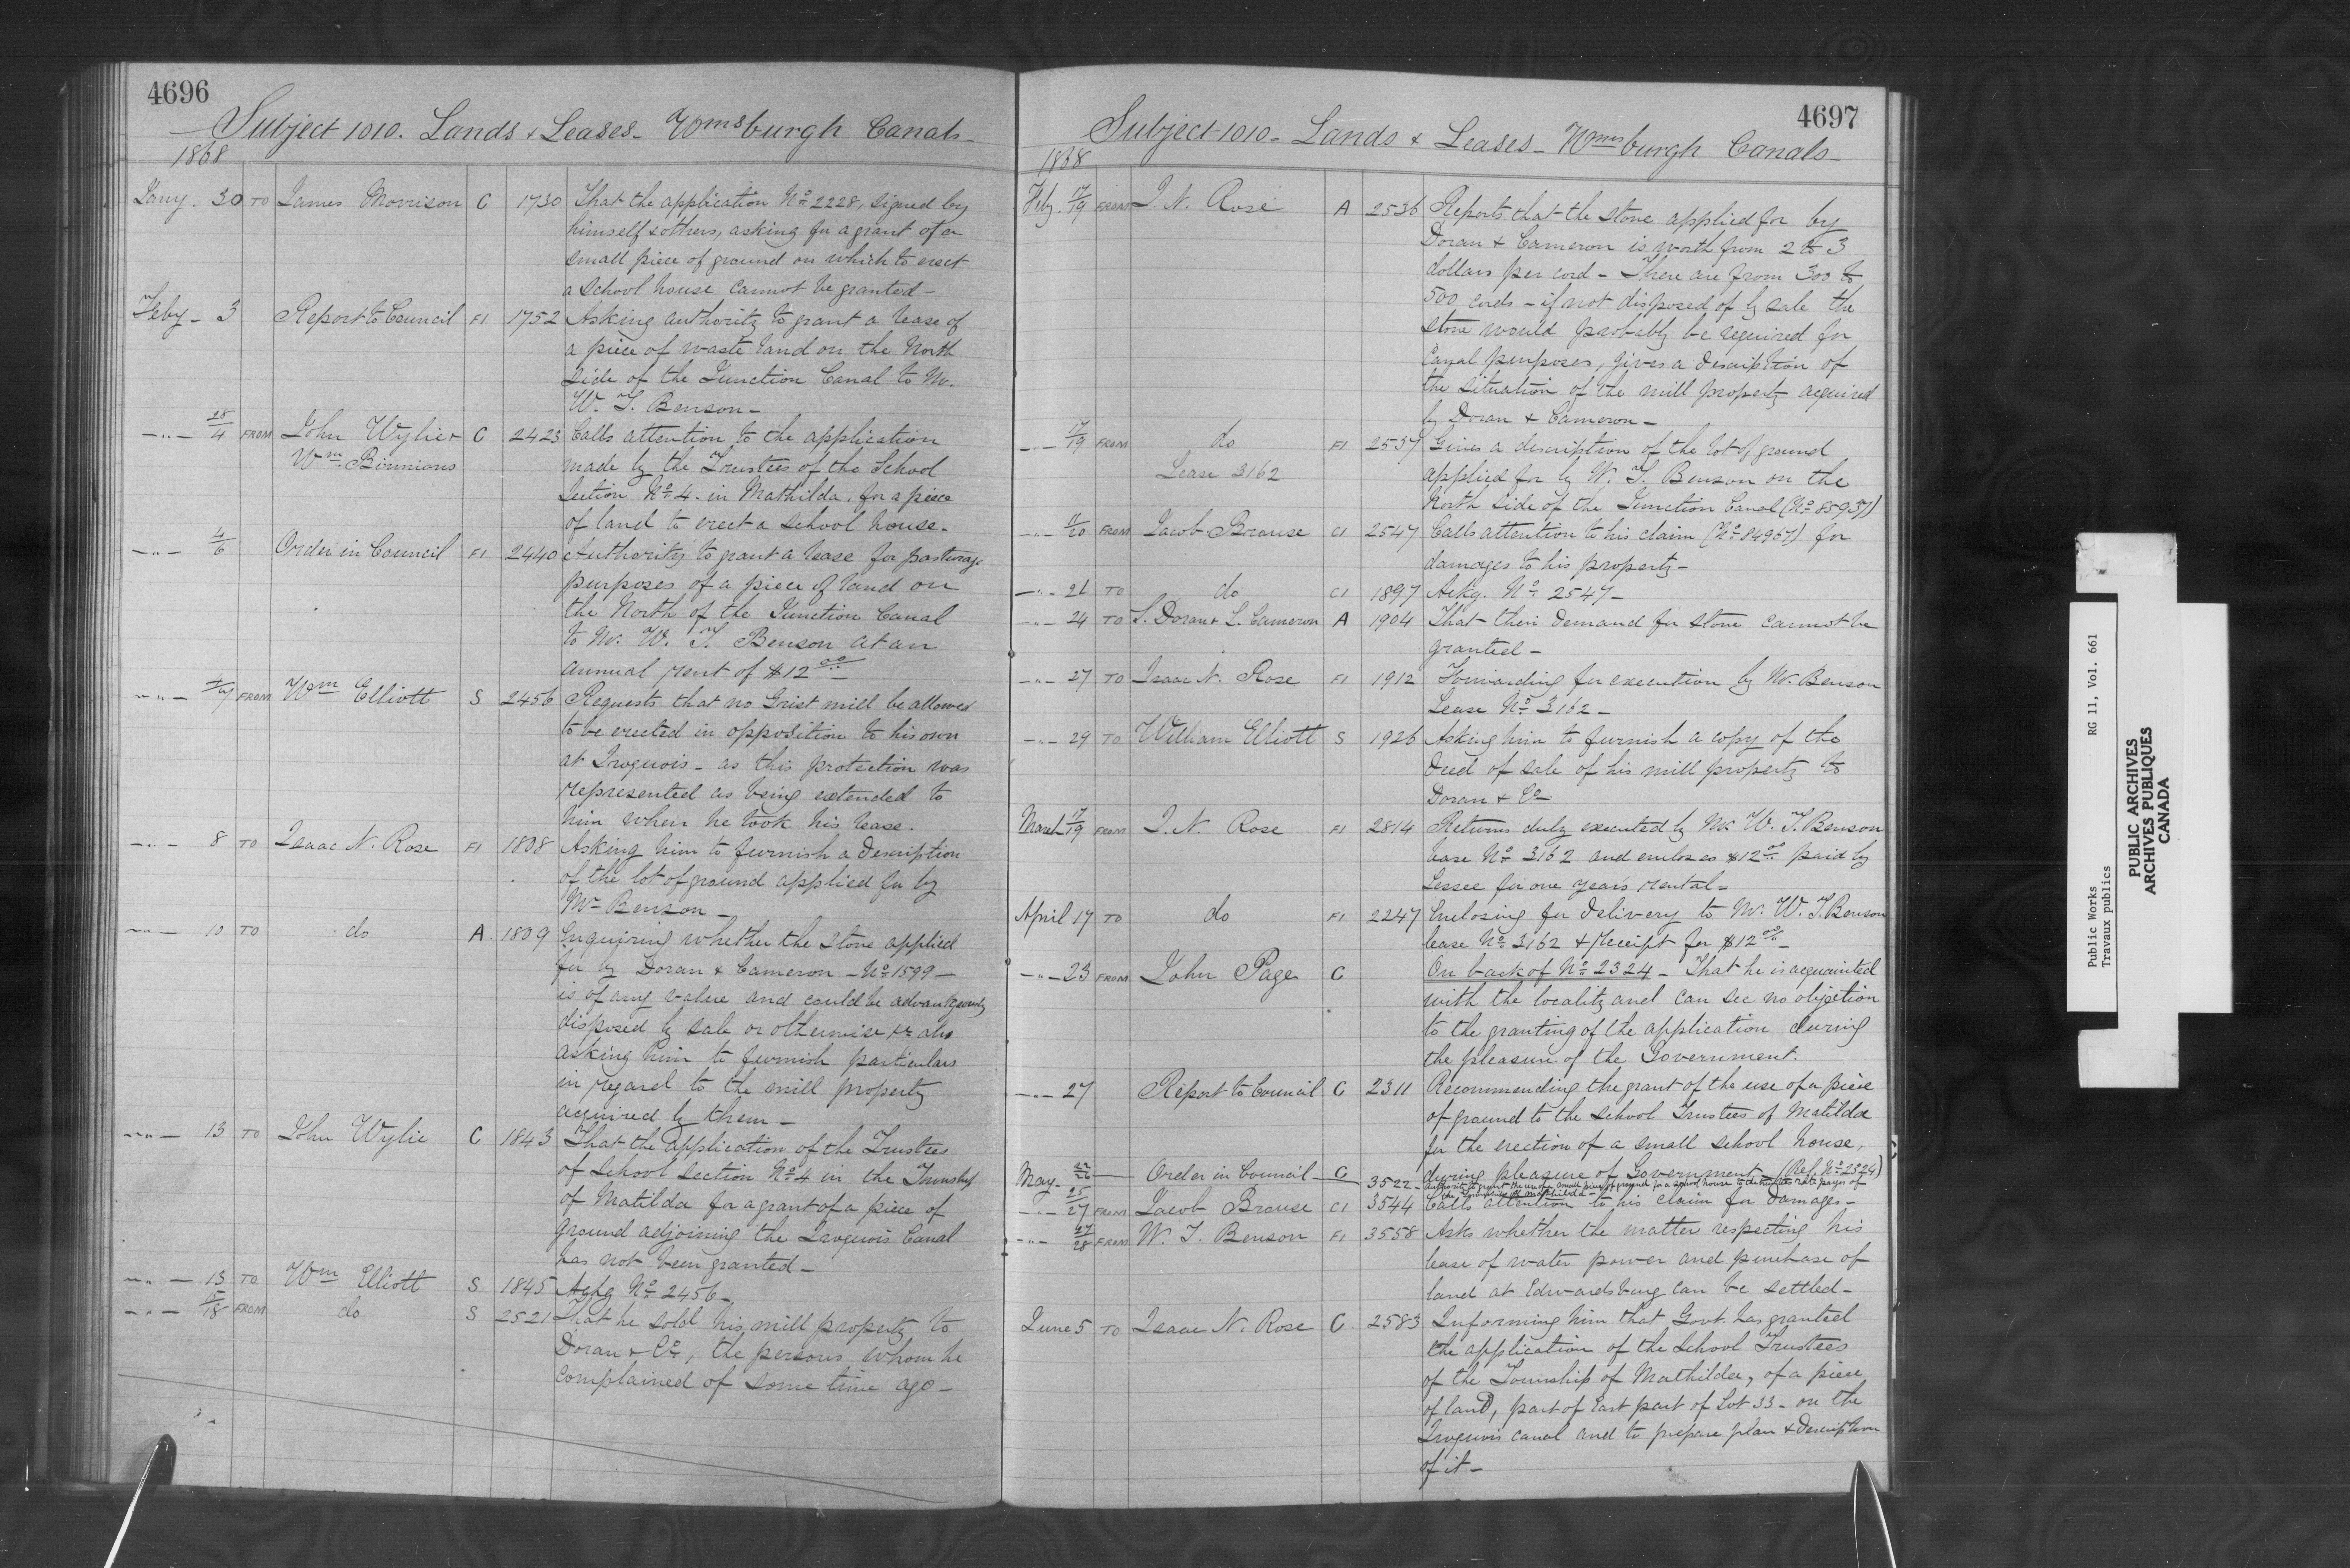 4696
Subject 1010. Lands & Leases - Wmsburgh Canals -
1868
Jany. 30 TO James Morrison C 1730 That the application No. 2228, signed by
himself & others, asking for a grant of a
small piece of ground on which to erect
a School house cannot be granted -
Feby - 3 Report to Council F1 1752 Asking authority to grant a lease of
a piece of waste land on the North
side of the Junction Canal to Mr.
W. T. Benson -
-"- 28/4 FROM John Wylie & C 2423 Calls attention to the application
Wm. Binnions made by the Trustees of the School
Section No. 4. in Mathilda, for a piece
of land to erect a school house.
-"- 4/6 Order in Council F1 2440 Authority to grant a lease for pasturage
purposes of a piece of land on
the North of the Junction Canal
to Mr. W. T. Benson at an
annual rent of $12.00
-"- 4/7 FROM Wm Elliott S 2456 Requests that no Grist mill be allowed
to be erected in opposition to his own
at Iroquois - as this protection was
represented as being extended to
him when he took his lease.
-"- 8 TO Isaac N. Rose F1 1808 Asking him to furnish a description
of the lot of ground applied for by
Mr. Benson -
-"- 10 TO do A. 1809 Enquiring whether the Stone applied
for by Doran & Cameron - No. 1599 -
is of any value and could be advantageously
disposed by sale or otherwise & also
asking him to furnish particulars
in regard to the mill property
acquired by them -
-"- 13 TO John Wylie C 1843 That the application of the Trustees
of School Section No. 4 in the Township
of Matilda for a grant of a piece of
ground adjoining the Iroquois Canal
has not been granted -
-"- 13 TO Wm Elliott S 1845 Ackg No. 2456 -
-"- 15/18 FROM do S 2521 That he sold his mill property to
Doran & Co., the persons whom he
complained of some time ago -
4697
Subject 1010 - Lands & Leases - Wmsburgh Canals -
1868
Feby. 17/19 FROM I. N. Rose A 2536 Reports that the stone applied for by
Doran & Cameron is worth from 2 to 3
dollars per cord - There are from 300 to
500 cords - if not disposed of by sale the
stone would probably be required for
Canal purposes, gives a description of
the situation of the mill property acquired
by Doran & Cameron -
-"- 17/19 FROM do F1 2537 Gives a description of the lot of ground
Lease 3162 applied for by W. T. Benson on the
North side of the Junction Canal (No. 85937)
-"- 11/20 FROM Jacob Brouse C1 2547 Calls attention to his claim (No. 84967) for
damages to his property -
-"- 21 TO do C1 1897 Ackg. No. 2547 -
-"- 24 TO S. Doran & L. Cameron A 1904 That their demand for stone cannot be
granted -
-"- 27 TO Isaac N. Rose F1 1912 Forwarding for execution by Mr. Benson
Lease No. 3162 -
-"- 29 TO William Elliott S 1926 Asking him to furnish a copy of the
deed of sale of his mill property to
Doran & Co -
March 17/19 FROM I. N. Rose F1 2814 Returns duly executed by Mr. W. T. Benson
lease No. 3162 and encloses $12.00 paid by
Lessee for one year's rental -
April 17 TO do F1 2247 Enclosing for delivery to Mr. W. T. Benson
lease No. 3162 & receipt for $12.00 -
-"- 23 FROM John Page C On back of No. 2324 - That he is acquainted
with the locality and can see no objection
to the granting of the application during
the pleasure of the Government.
-"- 27 Report to Council C 2311 Recommending the grant of the use of a piece
of ground to the School Trustees of Matilda
for the erection of a small school house,
during pleasure of Government (Ref. No. 2324)
May - 22/26 Order in Council C 3522 - Authority to grant the use of a small piece of ground for a school house to the rate payers of
the Township of Mathilda -
-"- 25/27 FROM Jacob Brouse C1 3544 Calls attention to his claim for damages -
-"- 27/28 FROM W. T. Benson F1 3558 Asks whether the matter respecting his
lease of water power and purchase of
land at Edwardsburg can be settled -
June 5 TO Isaac N. Rose C 2583 Informing him that Govt. has granted
the application of the School Trustees
of the Township of Mathilda, of a piece
of land, part of East part of Lot 33 - on the
Iroquois canal and to prepare plan & description
of it -
Public Works RG 11, Vol. 661
Travaux publics
PUBLIC ARCHIVES
ARCHIVES PUBLIQUES
CANADA